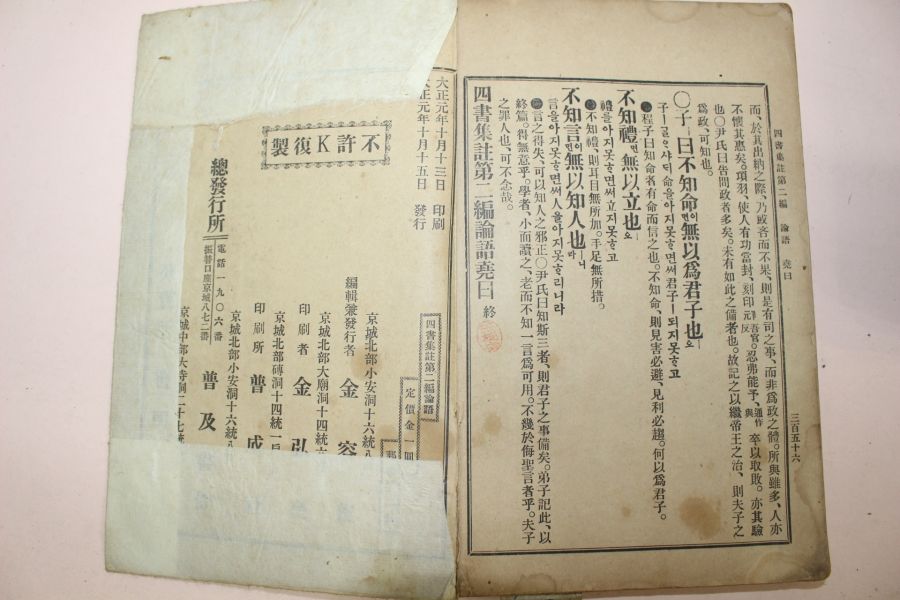 而、於其出納之際、乃或吝而不果、則是有司之事、而非爲政之體。所與雖多、人亦
不懷其惠矣。項羽、使人有功當封、刻印刓、忍弗能予、卒以取敗。亦其驗
也○尹氏曰告問政者多矣。未有如此之備者也。故記之以繼帝王之治、則夫子之
爲政、可知也。
○子ㅣ曰不知命이면無以爲君子也오
子ㅣ글ㅇ샤ᄃᆡ命을아지못ᄒᆞ면써君子ㅣ되지못ᄒᆞ고
程子曰知命者有命而信之也。不知命、則見害必避、見利必趨。何以爲君子。
不知禮면無以立也오
禮를아지못ᄒᆞ면써立지못ᄒᆞ고
不知禮、則耳目無所加。手足無所措。
不知言이면無以知人也ㅣ니라
言을아지못ᄒᆞ면써人을아지못ᄒᆞ리니라
言之得失、可以知人之邪正○尹氏曰知斯三者、則君子之事備矣。弟子記此、以
終篇。得無意乎。學者、小而讀之、老而不知一言爲可用。不幾於侮聖言者乎。夫子
之罪人也、可不念哉。
四書集註第二編論語堯曰 終
四書集註第二編 論語 堯曰
三百五十六
大正元年十月十三日 印刷
大正元年十月十五日 發行
不許K復製
四書集註第二編論語
定價金一圓
京城北部小安洞十六統八
編輯兼發行者 金 容
京城北部大廟洞十四統
印刷者 金 弘
京城北部磚洞十四統一戶
印刷所 普 成
京城北部小安洞十六統八
總發行所 普 及
電話一九〇六番
振替口座京城八七二番
京城中部大寺洞二十七統